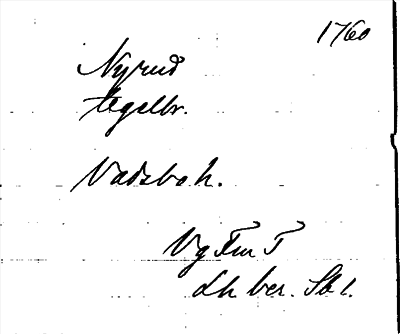 1760
Nyrud
tegelbr.
Vadsbo h.
Vg Fm T
Lh ber. Sb 1.